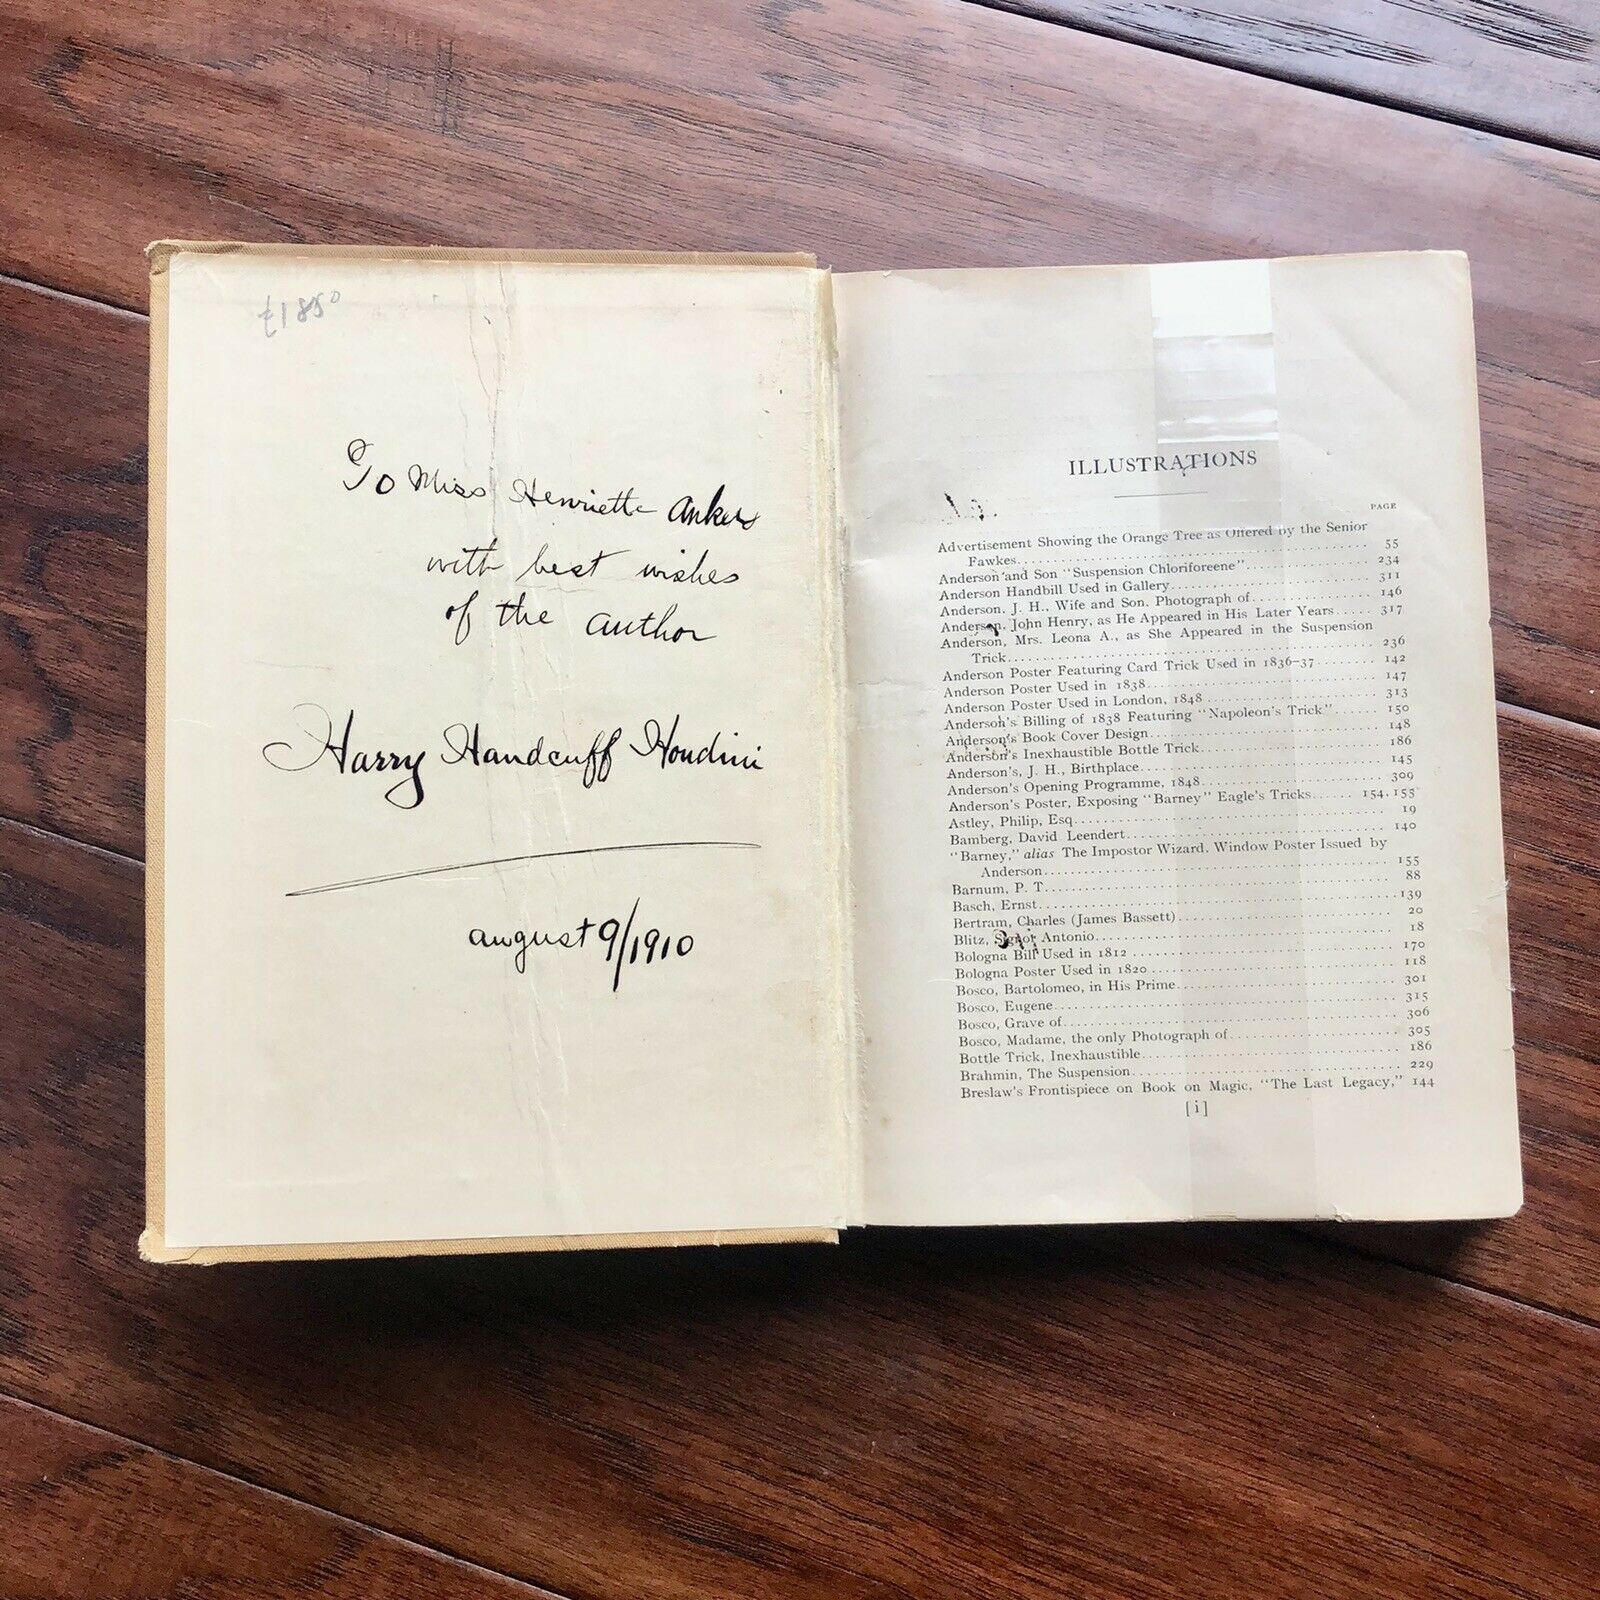 £1850
To Miss Henriette Ankers
with best wishes
of the author
Harry Handcuff Houdini
august 9/1910
ILLUSTRATIONS
PAGE
Advertisement Showing the Orange Tree as Offered by the Senior
Fawkes 55
Anderson and Son "Suspension Chloriforeene" 234
Anderson Handbill Used in Gallery 311
Anderson, J. H., Wife and Son, Photograph of 146
Anderson, John Henry, as He Appeared in His Later Years 317
Anderson, Mrs. Leona A., as She Appeared in the Suspension
Trick 236
Anderson Poster Featuring Card Trick Used in 1836-37 142
Anderson Poster Used in 1838 147
Anderson Poster Used in London, 1848 313
Anderson's Billing of 1838 Featuring "Napoleon's Trick" 150
Anderson's Book Cover Design 148
Anderson's Inexhaustible Bottle Trick 186
Anderson's, J. H., Birthplace 145
Anderson's Opening Programme, 1848 309
Anderson's Poster, Exposing "Barney" Eagle's Tricks 154, 155
Astley, Philip, Esq 19
Bamberg, David Leendert 140
"Barney," alias The Impostor Wizard, Window Poster Issued by
Anderson 155
Barnum, P. T. 88
Basch, Ernst 139
Bertram, Charles (James Bassett) 20
Blitz, Signor Antonio 18
Bologna Bill Used in 1812 170
Bologna Poster Used in 1820 118
Bosco, Bartolomeo, in His Prime 301
Bosco, Eugene 315
Bosco, Grave of 306
Bosco, Madame, the only Photograph of 305
Bottle Trick, Inexhaustible 186
Brahmin, The Suspension 229
Breslaw's Frontispiece on Book on Magic, "The Last Legacy," 144
[i]